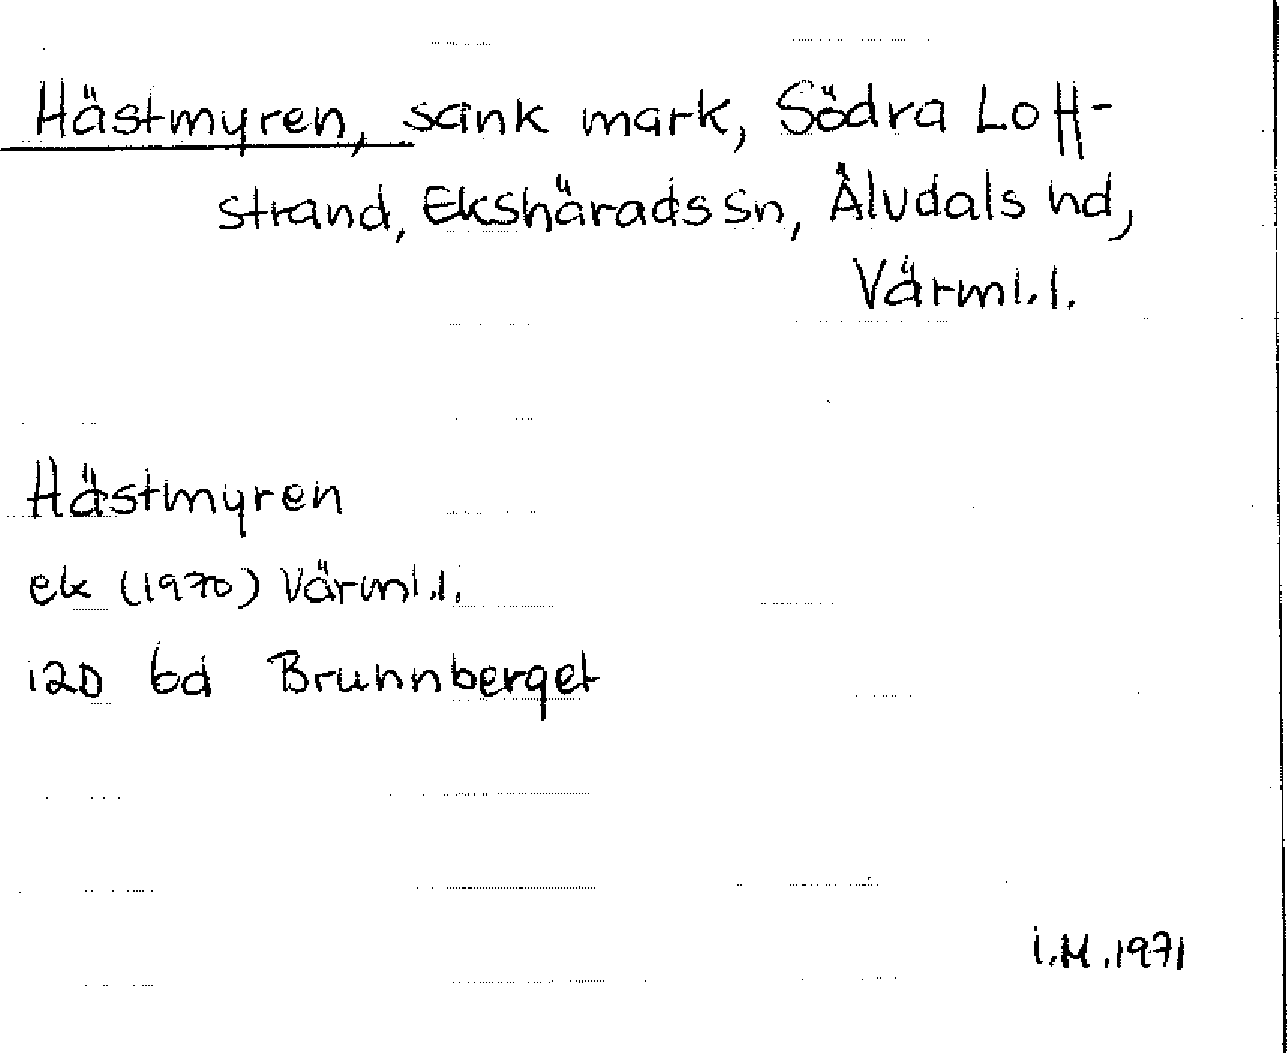 Hästmyren, sank mark, Södra Lott-
strand, Ekshärads sn, Älvdals hd,
Värml. l.
Hästmyren
ek (1970) Värml. l.
12D 6d Brunnberget
I.M. 1971